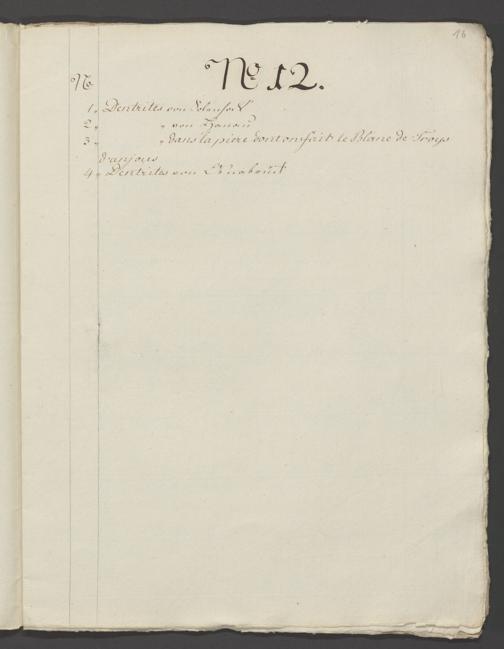 16
No 12.
No
1. Dentrites von
2. " von Hanau
3. " dans la piere dont on fait le Blanc de Troys
d'anjous
4. Dentrites von